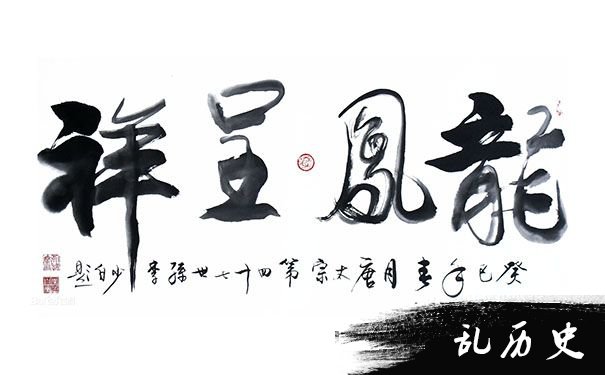 龍鳳呈祥
癸巳年春月唐太宗第四十七世孫李少白題
乱历史